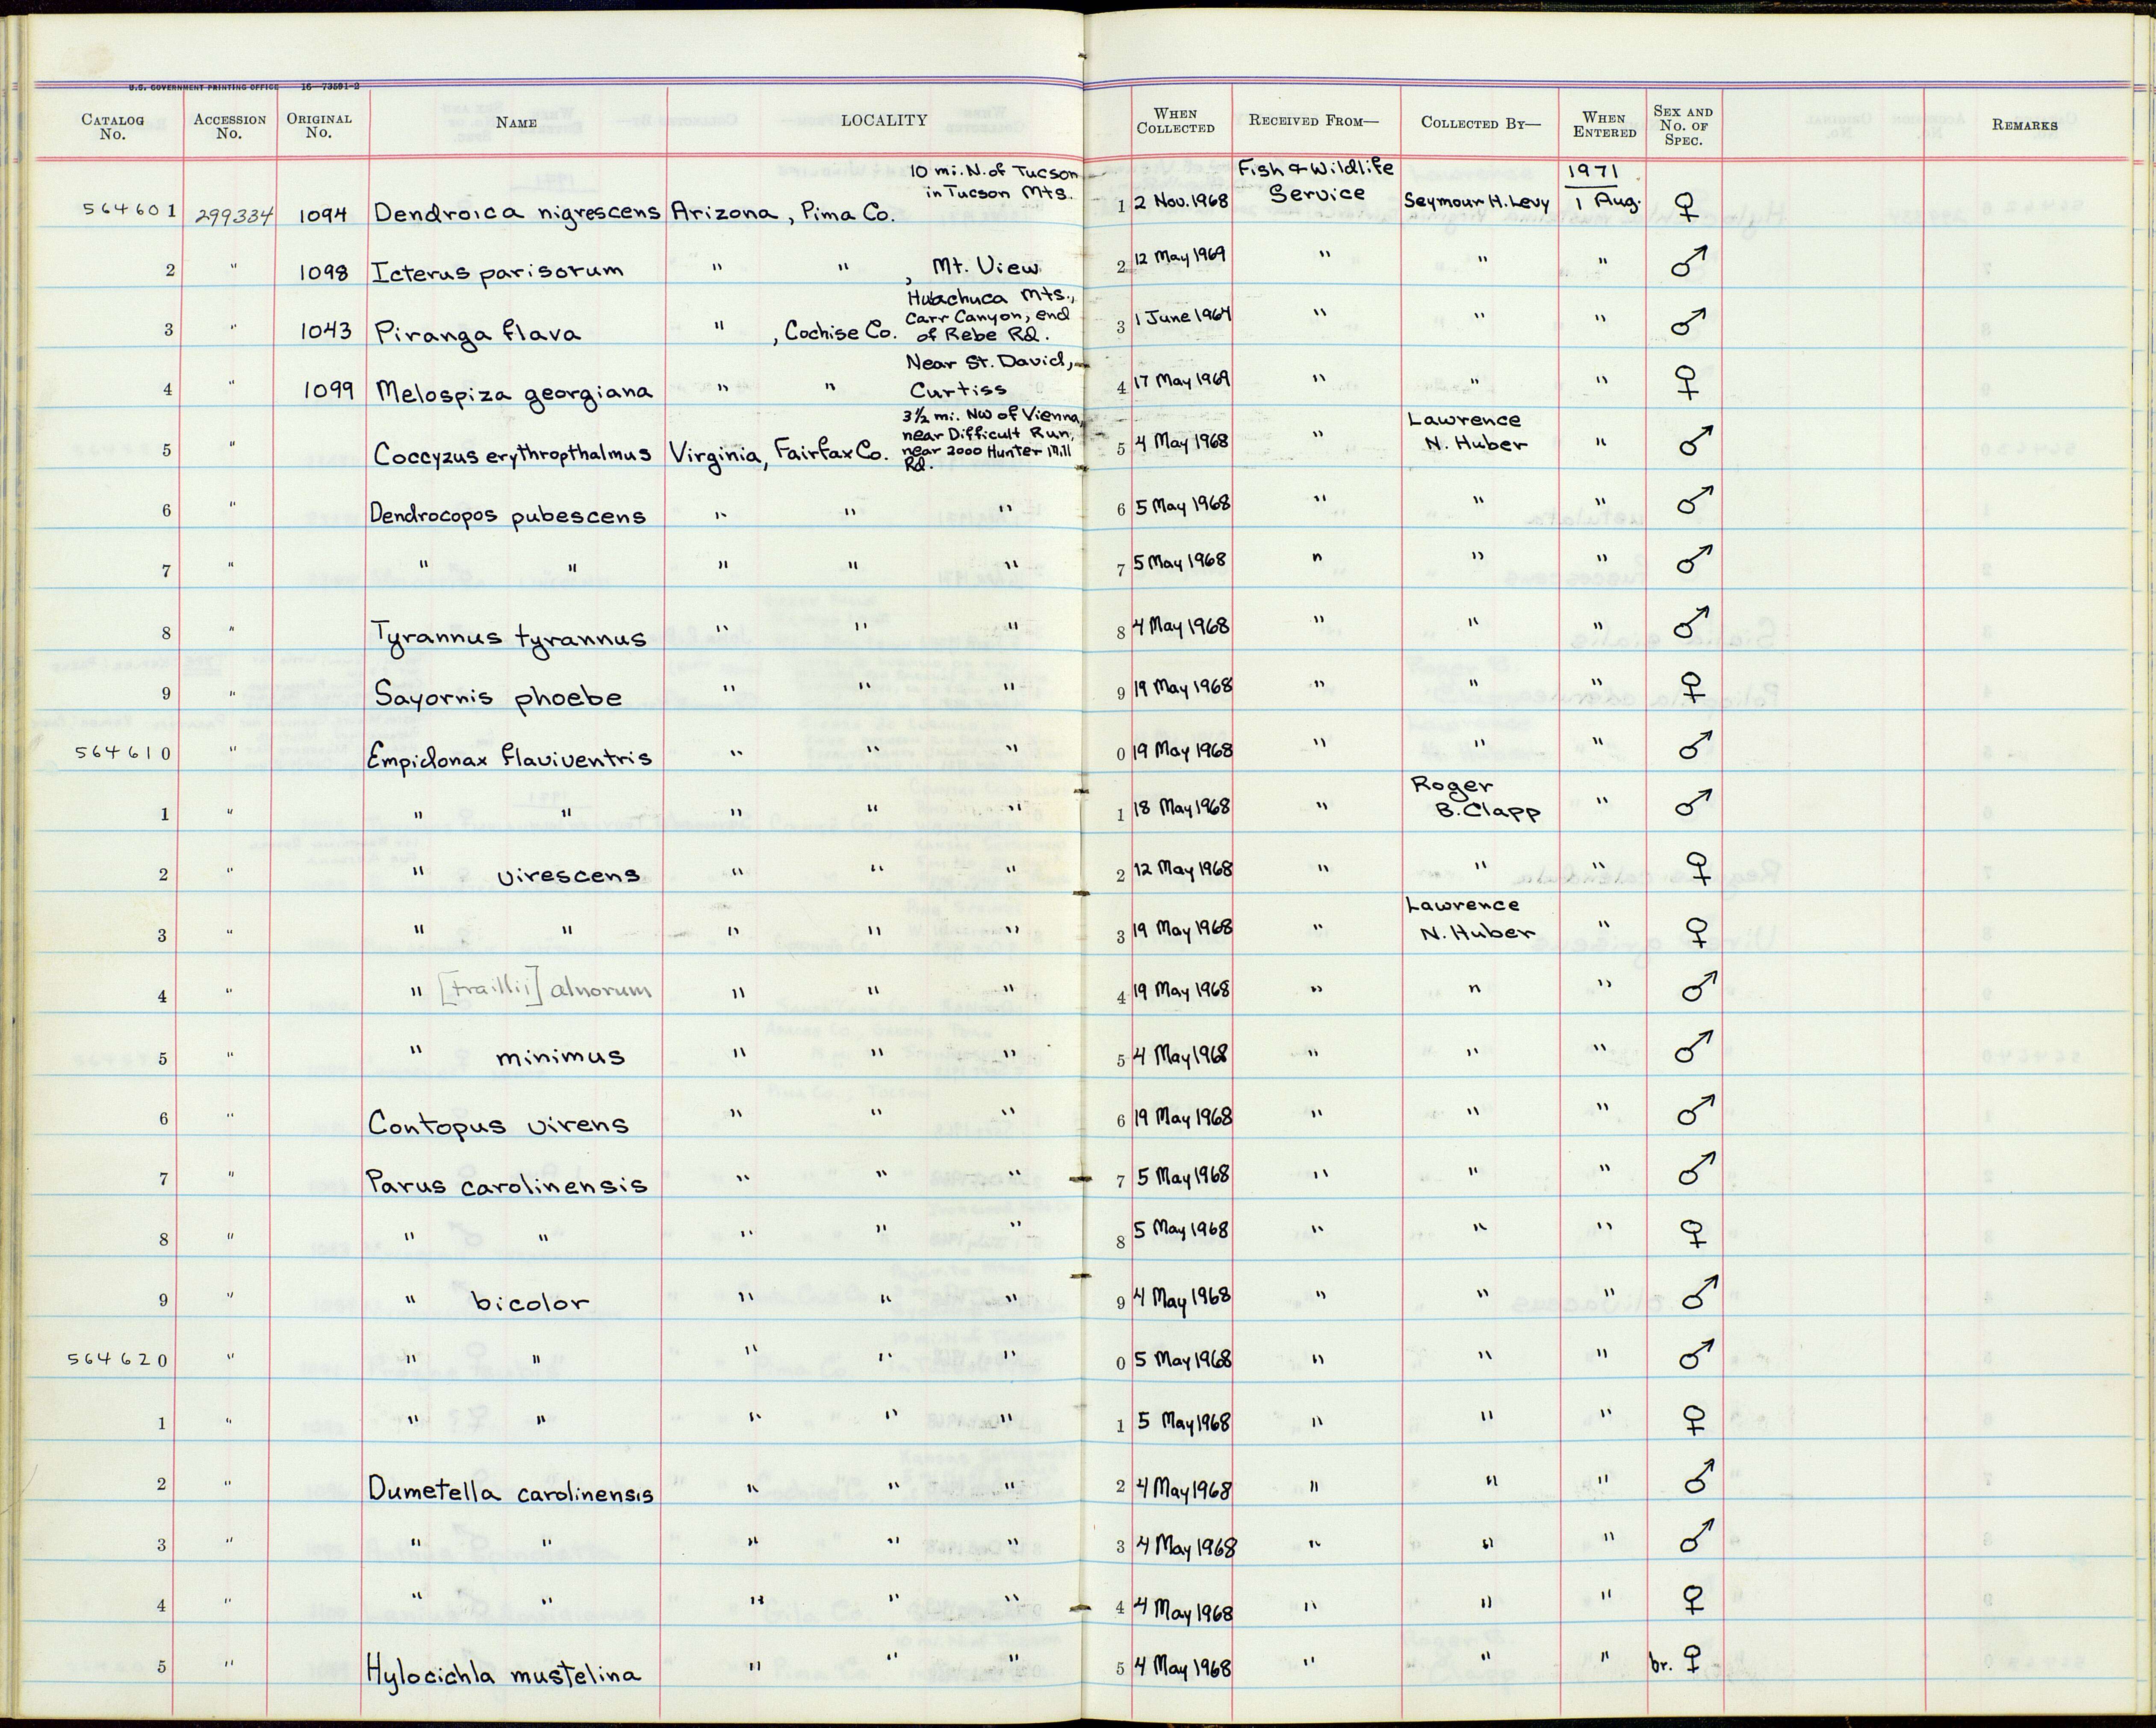 U.S. GOVERNMENT PRINTING OFFICE 16—73591-2
CATALOG No. ACCESSION No. ORIGINAL No. NAME LOCALITY WHEN COLLECTED RECEIVED FROM— COLLECTED BY— WHEN ENTERED SEX AND No. OF SPEC. REMARKS
10 mi. N. of Tucson Fish & Wildlife 1971
in Tucson Mts. Service
564601 299334 1094 Dendroica nigrescens Arizona, Pima Co. 1 2 Nov. 1968 Seymour H. Levy 1 Aug. ♀
2 " 1098 Icterus parisorum " " , Mt. View 2 12 May 1969 " " " ♂
Huachuca Mts.,
Carr Canyon, end
3 " 1043 Piranga flava " , Cochise Co. of Rebe Rd. 3 1 June 1964 " " " ♂
Near St. David,
4 " 1099 Melospiza georgiana " " Curtiss 4 17 May 1969 " " " ♀
3½ mi. NW of Vienna, Lawrence
near Difficult Run,
5 " Coccyzus erythropthalmus Virginia, Fairfax Co. near 2000 Hunter Mill 5 4 May 1968 " N. Huber " ♂
Rd.
6 " Dendrocopos pubescens " " " 6 5 May 1968 " " " ♂
7 " " " " " " 7 5 May 1968 " " " ♂
8 " Tyrannus tyrannus " " " 8 4 May 1968 " " " ♂
9 " Sayornis phoebe " " " 9 19 May 1968 " " " ♀
564610 " Empidonax flaviventris " " " 0 19 May 1968 " " " ♂
Roger
1 " " " " " " 1 18 May 1968 " B. Clapp " ♂
2 " " virescens " " " 2 12 May 1968 " " " ♀
Lawrence
3 " " " " " " 3 19 May 1968 " N. Huber " ♀
4 " " [traillii] alnorum " " " 4 19 May 1968 " " " ♂
5 " " minimus " " " 5 4 May 1968 " " " ♂
6 " Contopus virens " " " 6 19 May 1968 " " " ♂
7 " Parus carolinensis " " " 7 5 May 1968 " " " ♂
8 " " " " " " 8 5 May 1968 " " " ♀
9 " " bicolor " " " 9 4 May 1968 " " " ♂
564620 " " " " " " 0 5 May 1968 " " " ♂
1 " " " " " " 1 5 May 1968 " " " ♀
2 " Dumetella carolinensis " " " 2 4 May 1968 " " " ♂
3 " " " " " " 3 4 May 1968 " " " ♂
4 " " " " " " 4 4 May 1968 " " " ♀
5 " Hylocichla mustelina " " " 5 4 May 1968 " " " br. ♀